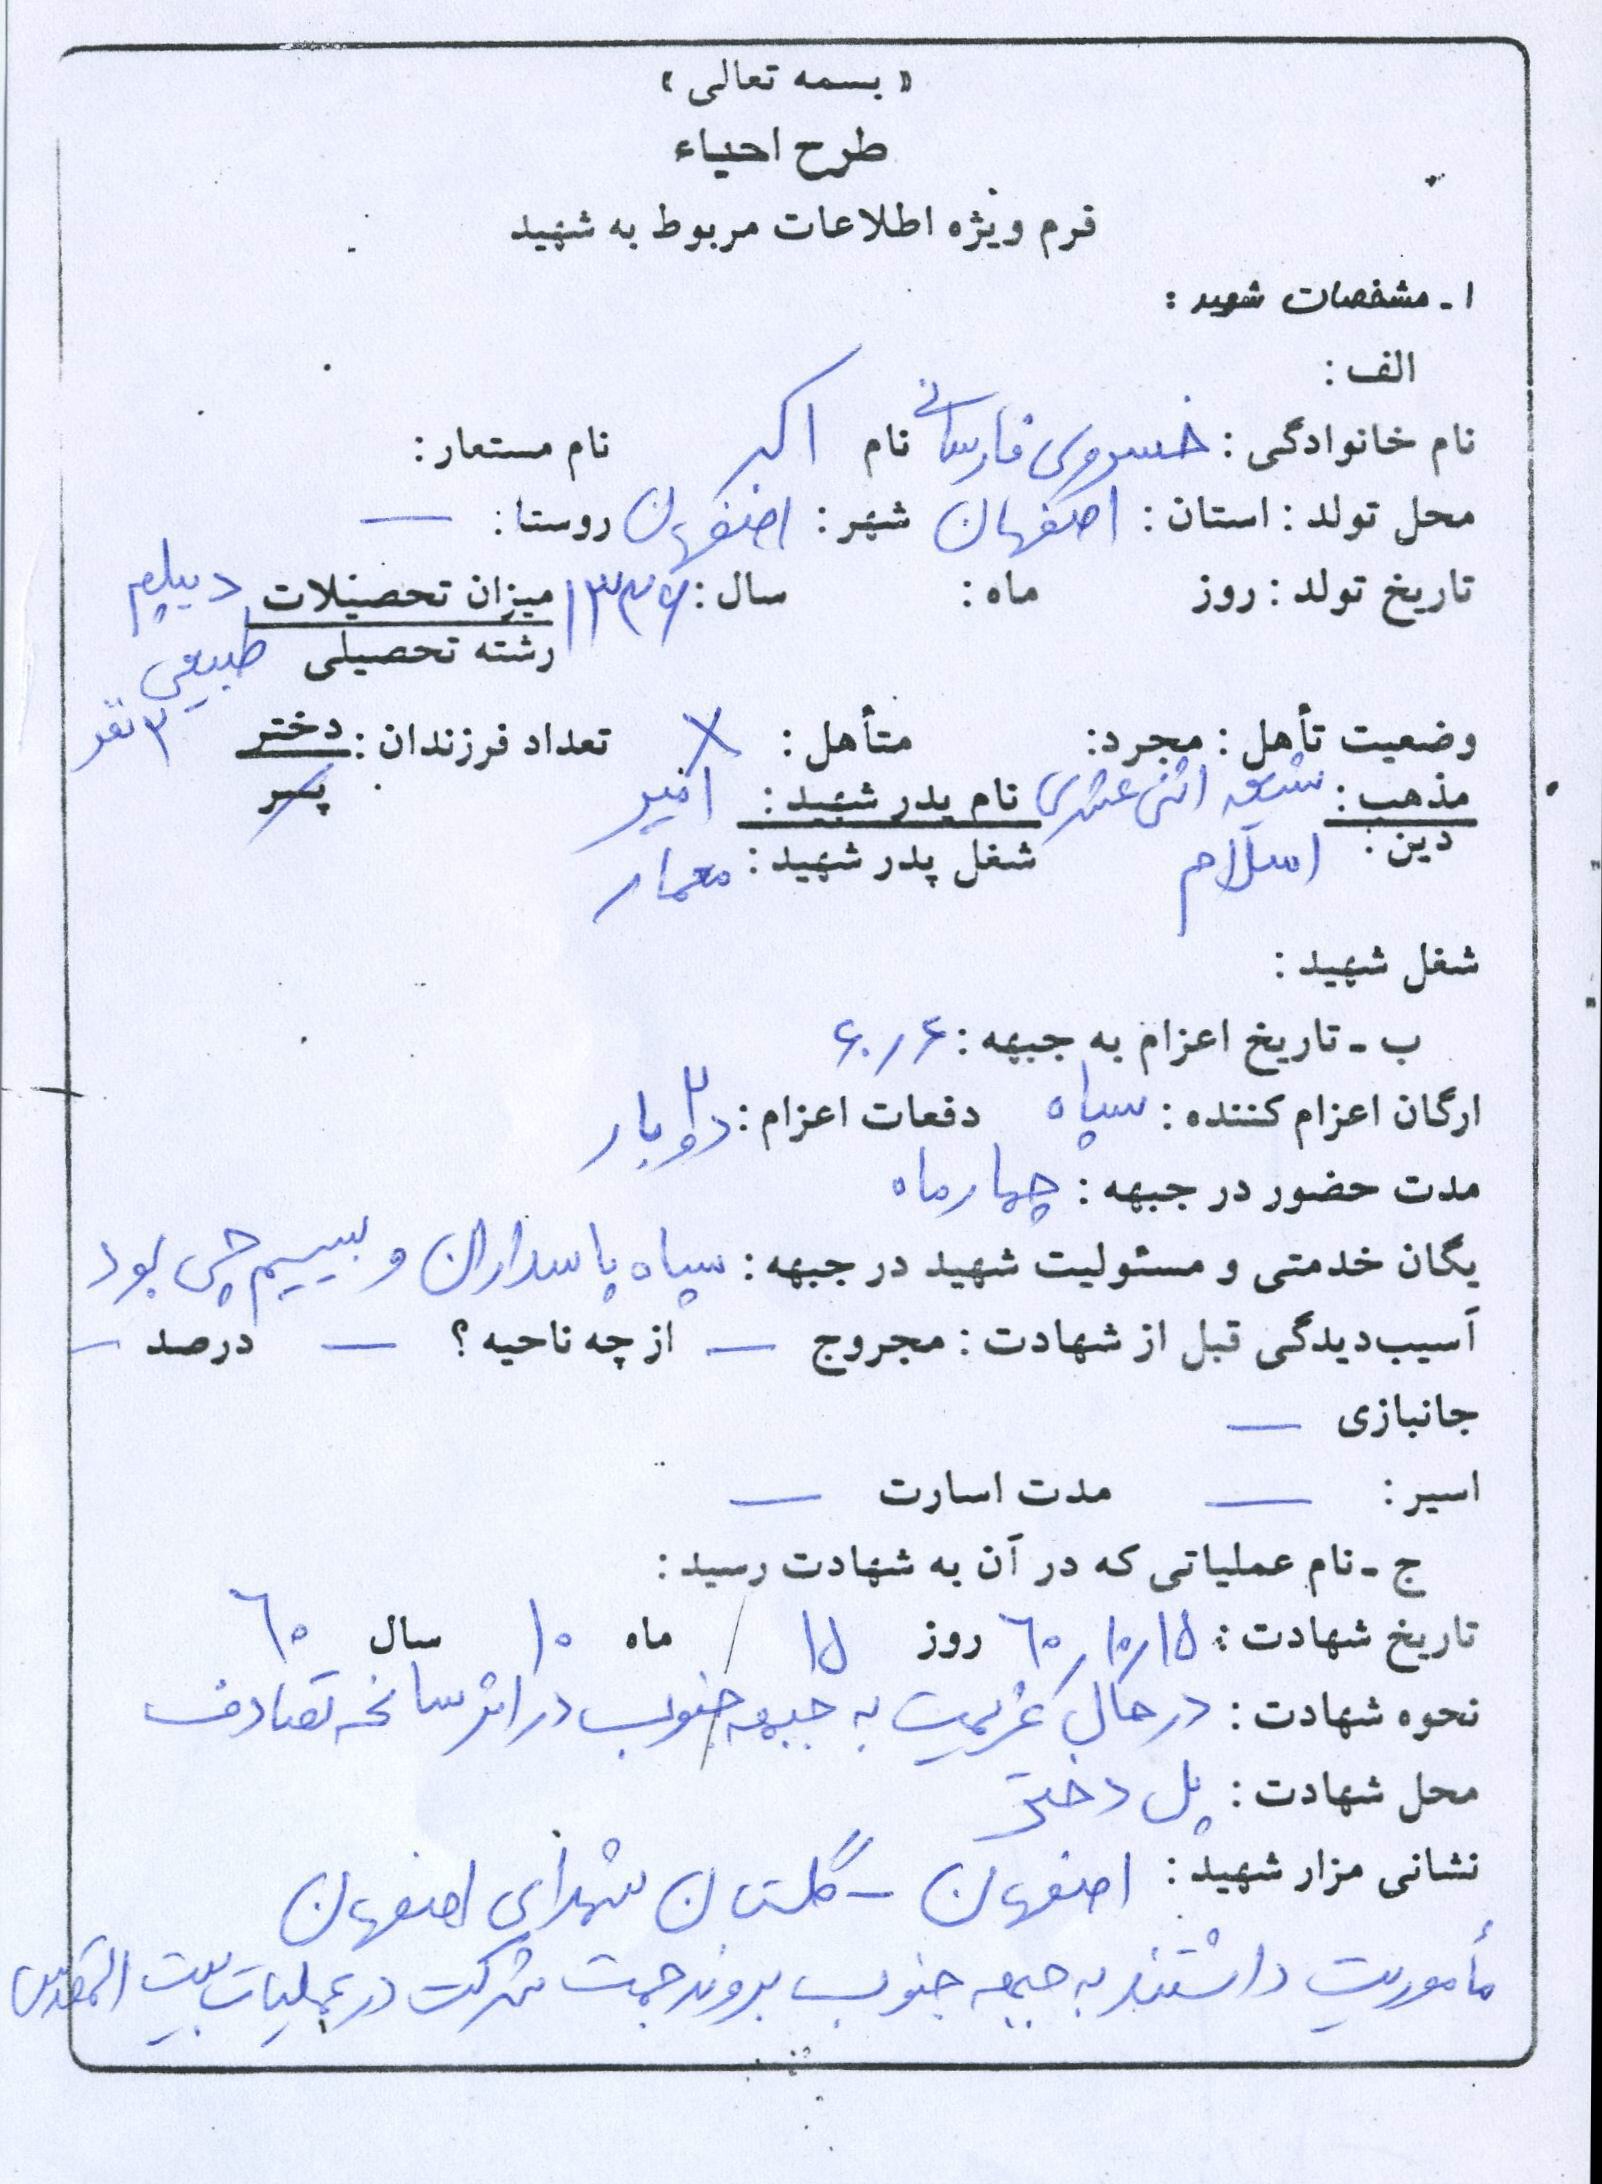 « بسمه تعالی »
طرح احیاء
فرم ویژه اطلاعات مربوط به شهید
۱ـ مشخصات شهید :
الف :
نام خانوادگی : خسروی فارسانی نام اکبر نام مستعار :
محل تولد : استان : اصفهان شهر : اصفهان روستا : —
تاریخ تولد : روز ماه : سال : ۱۳۳۶ میزان تحصیلات دیپلم
رشته تحصیلی طبیعی
وضعیت تأهل : مجرد: متأهل : X تعداد فرزندان : دختر ۳ نفر
پسر
مذهب : شیعه اثنی عشری نام پدر شهید :
دین : اسلام شغل پدر شهید : معمار
شغل شهید :
ب ـ تاریخ اعزام به جبهه : ۶۰/۶
ارگان اعزام کننده : سپاه دفعات اعزام : ۲ دو بار
مدت حضور در جبهه : چهار ماه
یگان خدمتی و مسئولیت شهید در جبهه : سپاه پاسداران و بیسیم چی بود
آسیب‌دیدگی قبل از شهادت : مجروح — از چه ناحیه ؟ — درصد —
جانبازی —
اسیر : — مدت اسارت —
ج ـ نام عملیاتی که در آن به شهادت رسید :
تاریخ شهادت : ۶۰/۱۰/۱۵ روز ۱۵ ماه ۱۰ سال ۶۰
نحوه شهادت : در حال عزیمت به جبهه جنوب در اثر سانحه تصادف
محل شهادت : پل دختر
نشانی مزار شهید : اصفهان – گلستان شهدای اصفهان
مأموریت داشتند به جبهه جنوب بروند جهت شرکت در عملیات بیت المقدس